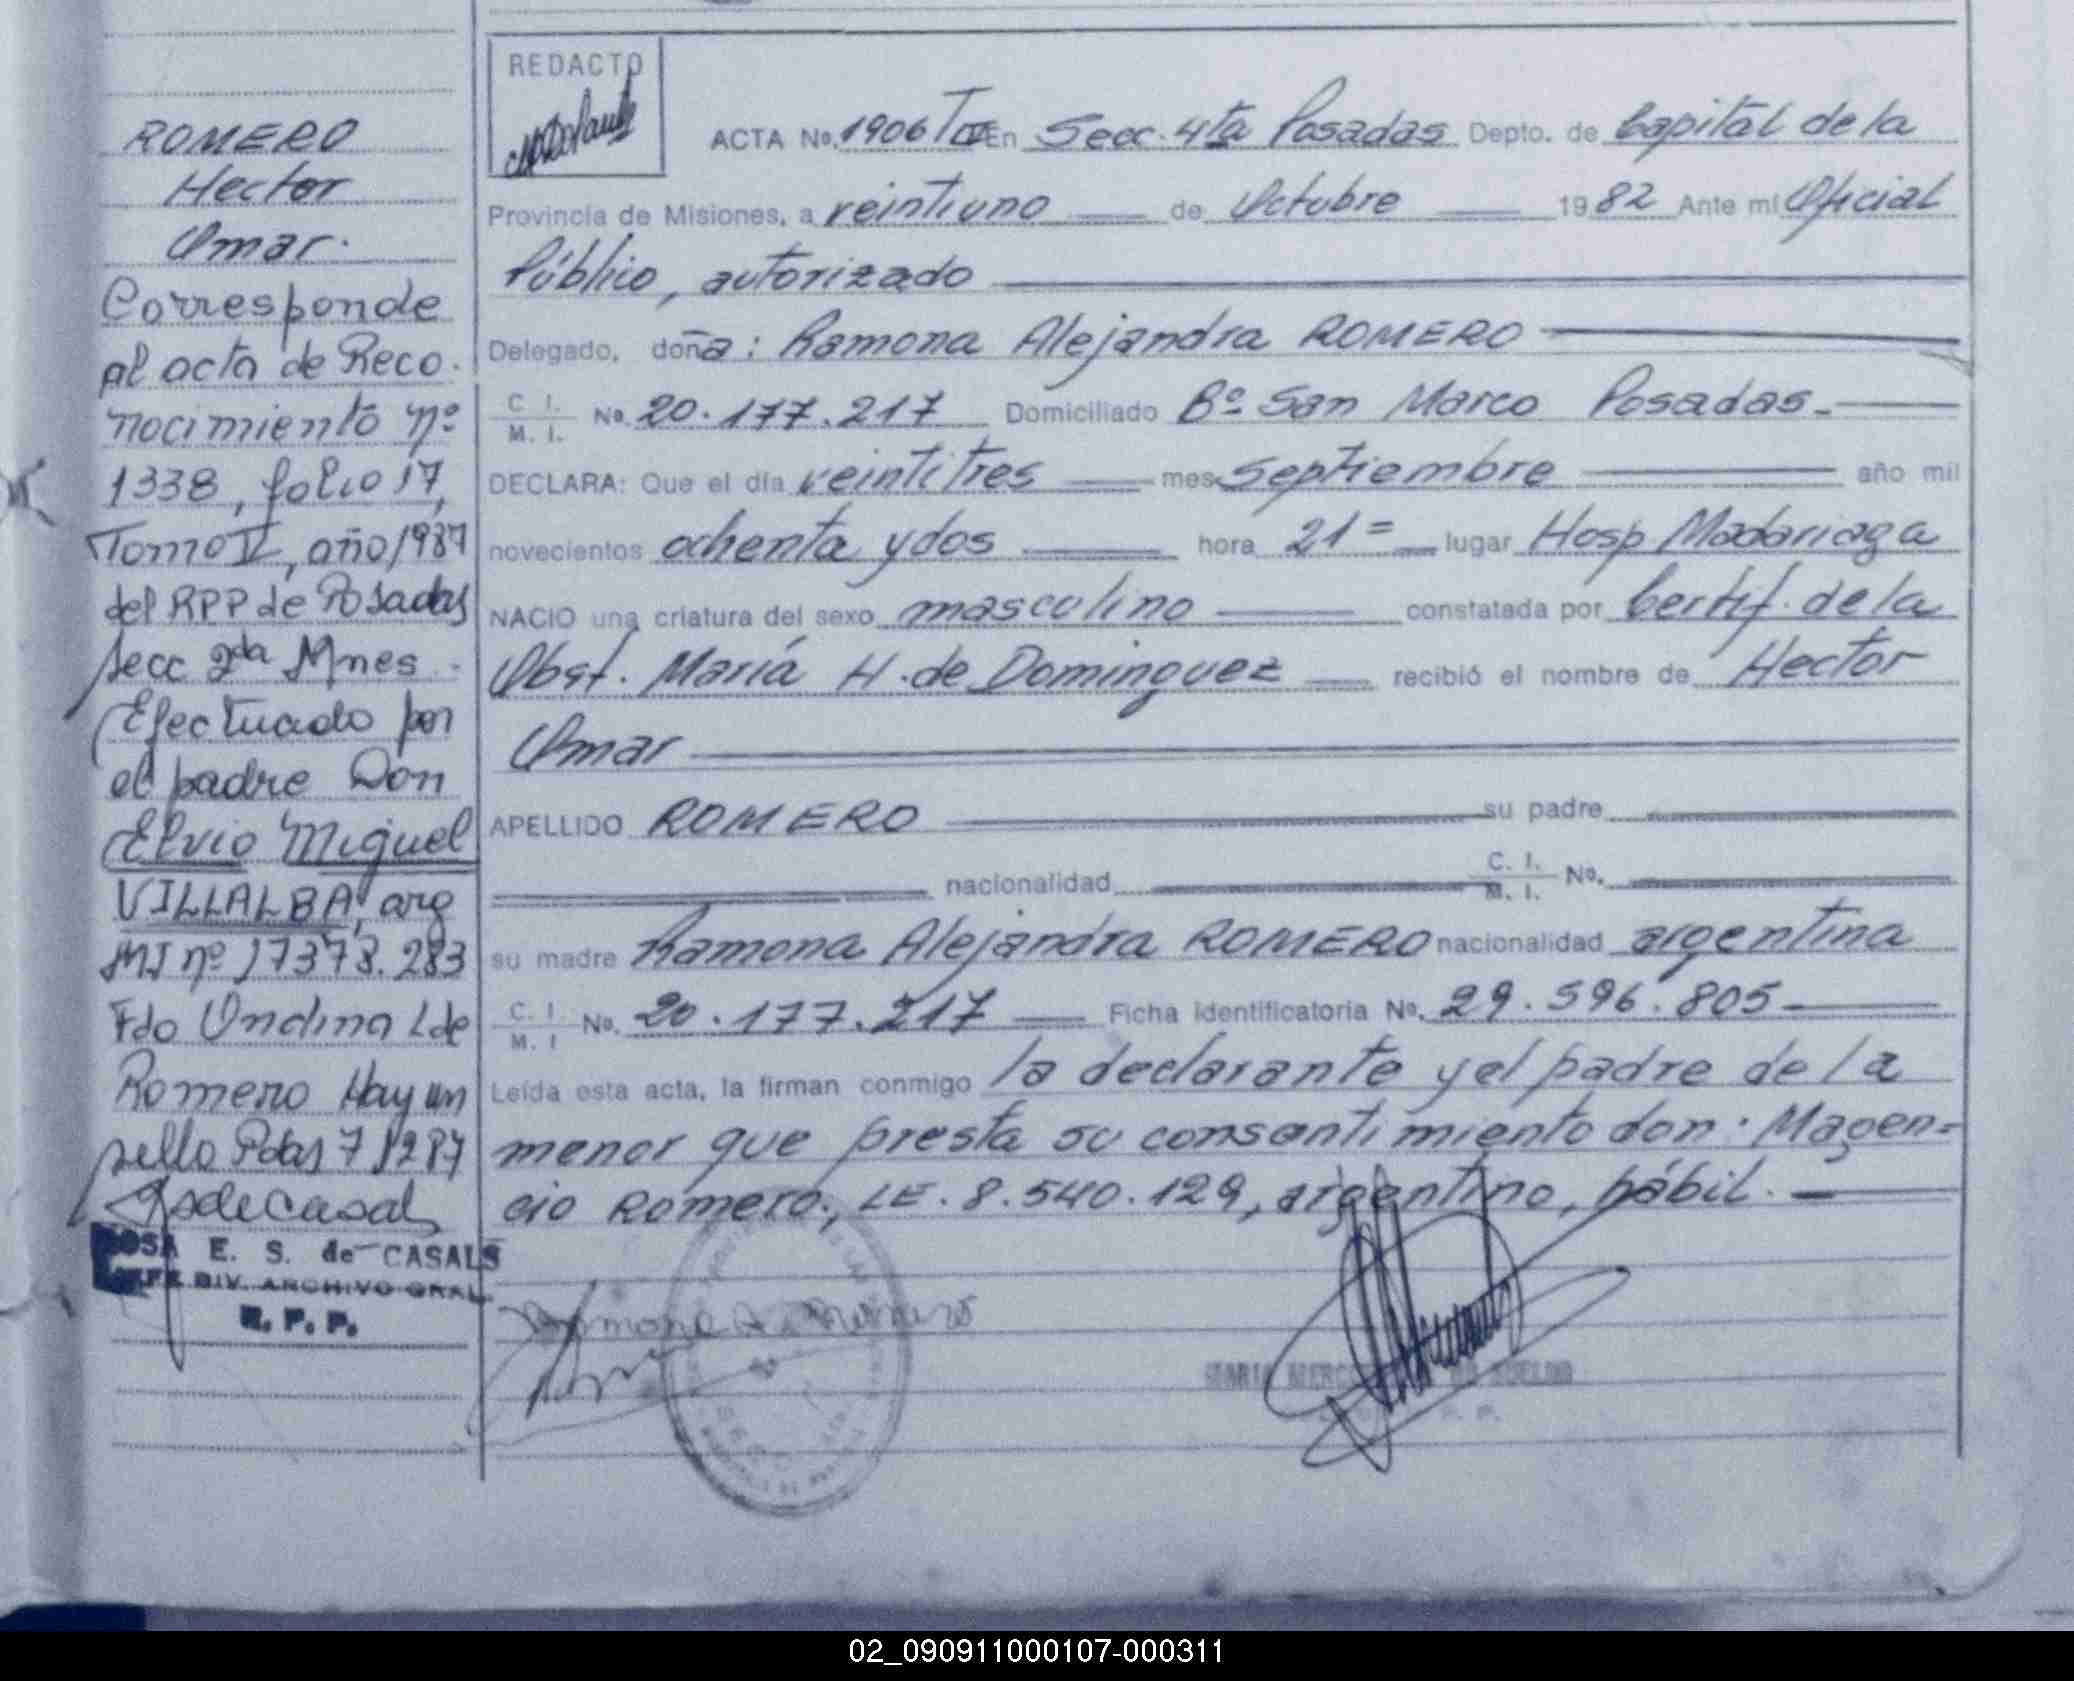 ROMERO
Hector
Omar.
Corresponde
al acta de Reco.
nocimiento nº
1338, folio 17,
Tomo II, año 1987
del RPP de Posadas
secc 2da Mnes.
Efectuado por
el padre Don
Elvio Miguel
VILLALBA, arg
MI nº 17378.283
Fdo Undina L de
Romero Hay un
sello Pdas 7
ROSA E. S. de CASALS
JEFE DIV. ARCHIVO GRAL.
R. P. P.
REDACTO
ACTA No. 1906 En Secc. 4ta Posadas Depto. de Capital de la
Provincia de Misiones, a veintiuno de Octubre 1982 Ante mi Oficial
Público, autorizado
Delegado, doña: Ramona Alejandra ROMERO
C. I. M. I. No. 20.177.217 Domiciliado Bº San Marco Posadas.
DECLARA: Que el día veintitres mes Septiembre año mil
novecientos ochenta y dos hora 21= lugar Hosp Madariaga
NACIO una criatura del sexo masculino constatada por Certif. de la
Obst. María H. de Dominguez recibió el nombre de Hector
Omar
APELLIDO ROMERO su padre
nacionalidad C. I. M. I. No.
su madre Ramona Alejandra ROMERO nacionalidad argentina
C. I. M. I No. 20.177.217 Ficha identificatoria No. 29.596.805
Leída esta acta, la firman conmigo la declarante y el padre de la
menor que presta su consentimiento don: Magen=
cio Romero, LE. 8.540.129, argentino, hábil.
Ramona A. Romero
02_090911000107-000311